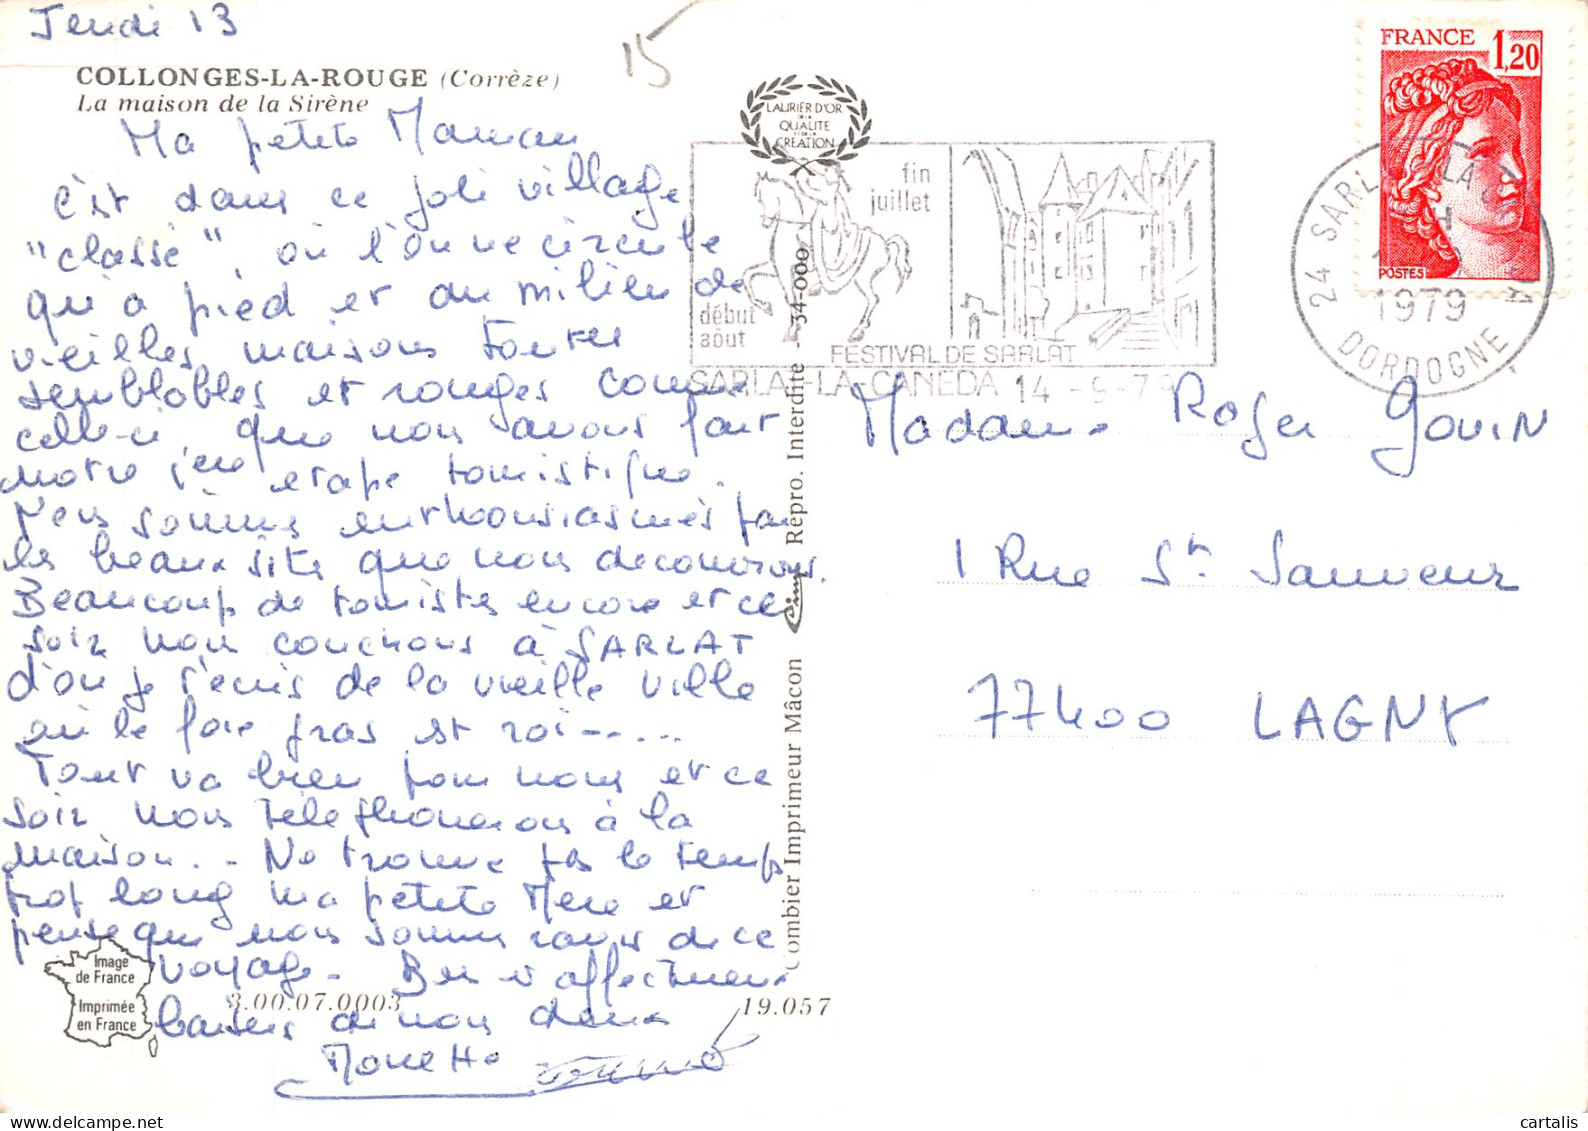 Jeudi 13
15
COLLONGES-LA-ROUGE (Corrèze)
La maison de la Sirène
Ma petite Maman
c'est dans ce joli village
"classé", où l'on ne circule
qu'à pied et au milieu de
vieilles maisons toutes
semblables et rouges comme
celle-ci, que nous avons fait
notre 1ère etape touristique.
Nous sommes enthousiasmés par
les beaux sites que nous decouvrons.
Beaucoup de touristes encore et ce
soir nous couchons à SARLAT
d'où je t'ecris de la vieille ville
où le foie gras est roi-----
Tout va bien pour nous et ce
soir nous telephonerons à la
maison.- Ne trouve pas le temps
trop long ma petite Mere et
pense que nous sommes ravis de ce
voyage- Bien affectueux
baisers de nous deux
LAURIER D'OR
DE LA
QUALITE
ET DE LA
CREATION
fin
juillet
début
août
FESTIVAL DE SARLAT
SARLAT-LA-CANEDA 14 -9-79
FRANCE 1,20
POSTES
24 SARLAT LA
1979
DORDOGNE
Madame Roger Gouin
1 Rue St Sauveur
77400 LAGNY
Combier Imprimeur Mâcon Cim Repro. Interdite - 34-000
Image
de France
Imprimée
en France
3.00.07.0003
19.057
delcampe.net
cartalis